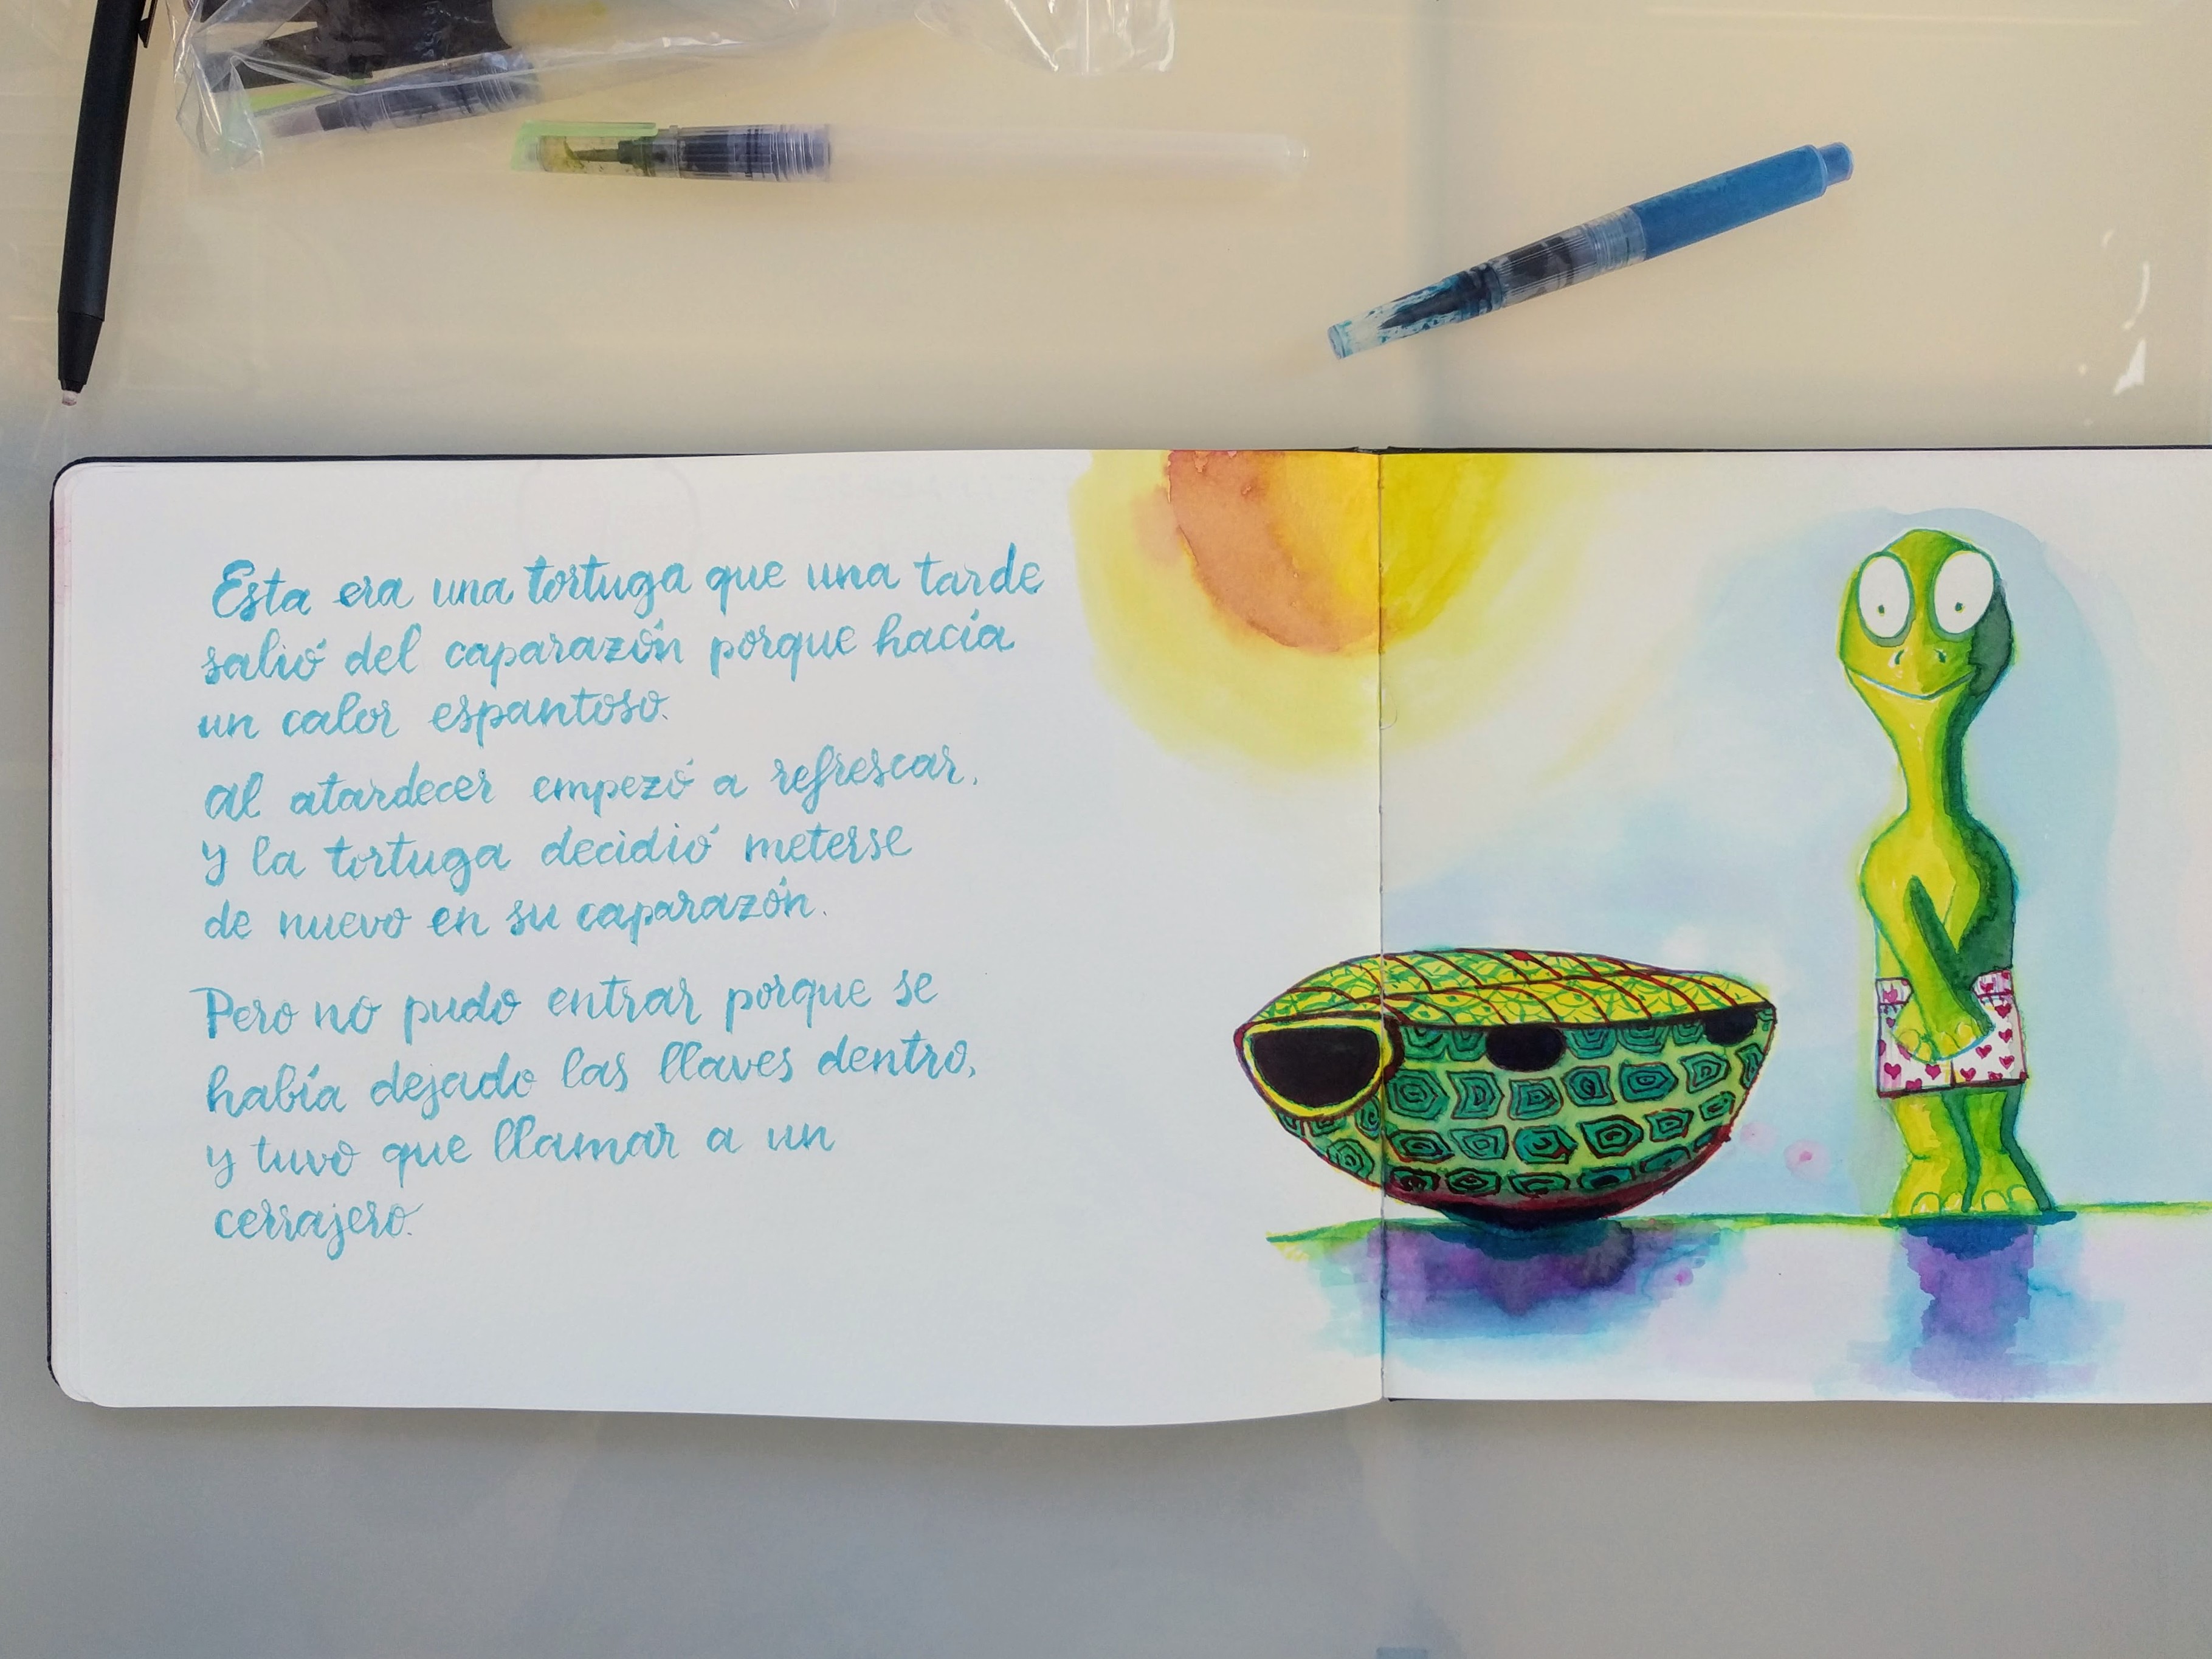 Esta era una tortuga que una tarde
salió del caparazón porque hacía
un calor espantoso.
Al atardecer empezó a refrescar,
y la tortuga decidió meterse
de nuevo en su caparazón.
Pero no pudo entrar porque se
había dejado las llaves dentro,
y tuvo que llamar a un
cerrajero.